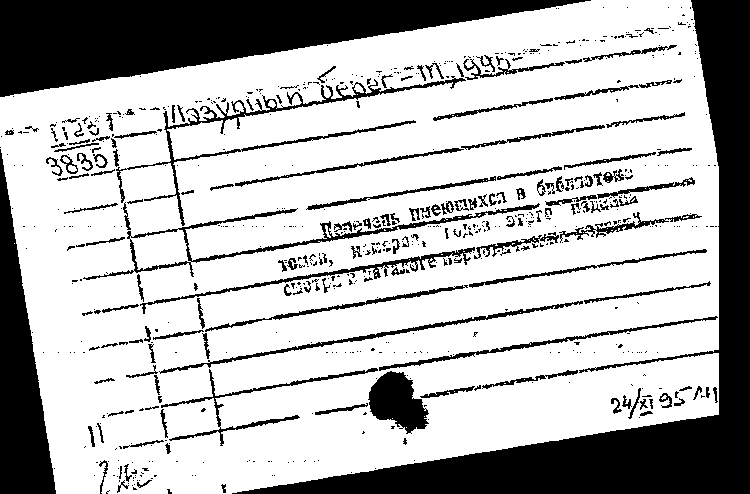 Лазурный берег – М, 1995
П28
3835
Перечень имеющихся в библиотеке
томов, номеров, годов этого издания
смотри в каталоге периодических изданий
24/XI 95
11